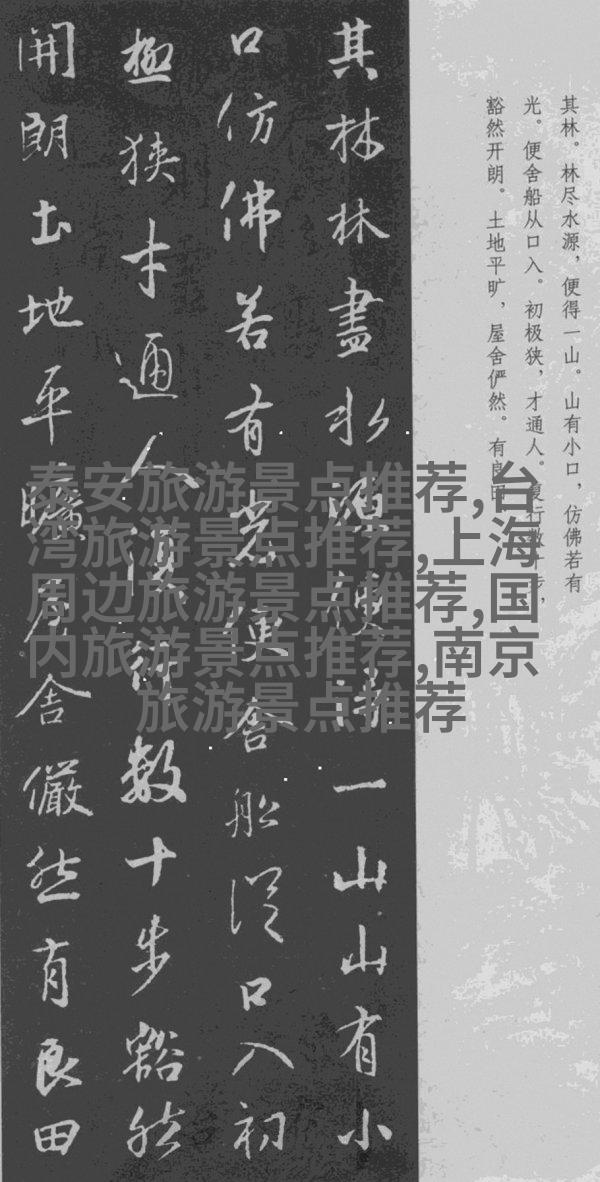 其林。林尽水源，便得一山。山有小口，仿佛若有
光。便舍船从口入。初极狭，才通人。复行数十步，
豁然开朗。土地平旷，屋舍俨然。有良田
其林林盡水源便得一山山有小
口仿佛若有光便舍船從口入初
極狹才通人復行數十步豁然
開朗土地平曠屋舍儼然有良田
泰安旅游景点推荐,台
湾旅游景点推荐,上海
周边旅游景点推荐,国
内旅游景点推荐,南京
旅游景点推荐